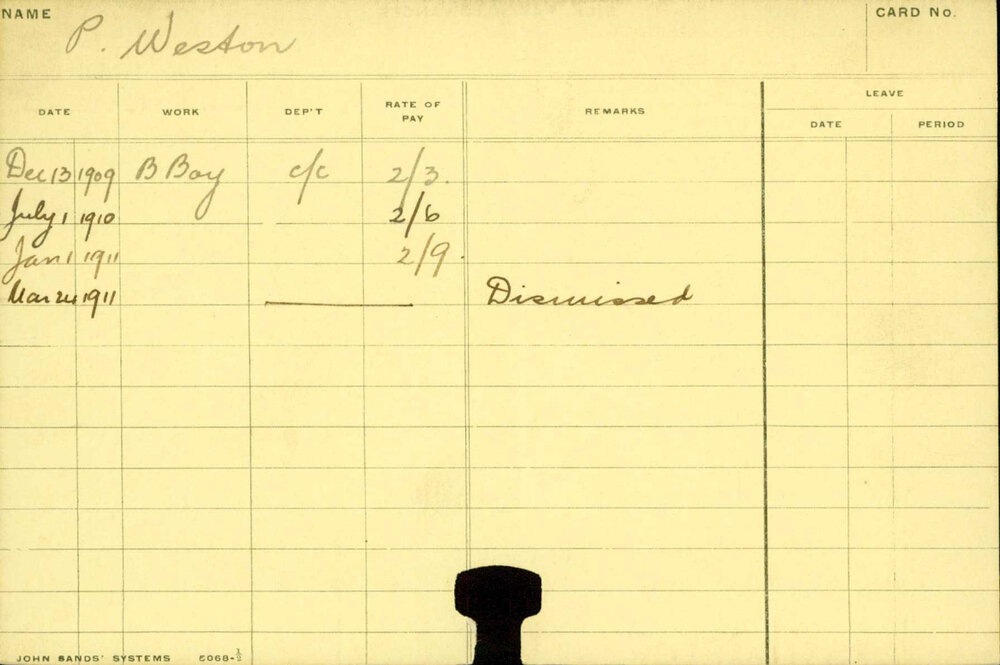 NAME P. Weston CARD No.
LEAVE
DATE WORK DEP'T RATE OF PAY REMARKS DATE PERIOD
Dec 13 1909 B Boy c/c 2/3.
July 1 1910 2/6
Jan 1 1911 2/9.
Mar 24 1911 Dismissed
JOHN SANDS' SYSTEMS 5068-½